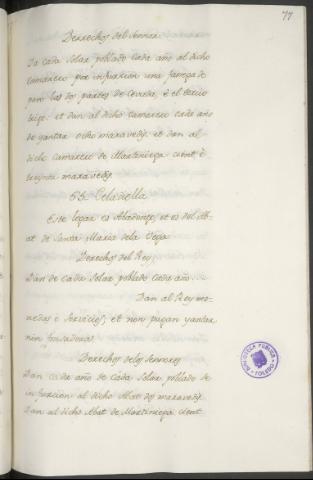 77
Derechos del Sennor.
Da cada Solar poblado cada año al dicho
Camarero por infurcion una fanega de
pan las dos partes de Cevada, è el tercio
trigo: et dan al dicho Camarero cada año
de yantar ocho maravedis. et dan al
dicho Camarero de Martiniega cient è
treynta maravedis.
55. Celadiella
Este logar es Abadengo, et es del Ab-
at de Santa Maria dela Vega
Derechos del Rey
Dan de cada Solar poblado cada año...
Dan al Rey mo-
nedas è Servicios, et non pagan yantar
nin fonsadera.
Derechos delos Sennores
Dan cada año de cada Solar poblado de
infurcion al dicho Abat dos maravedis.
Dan al dicho Abat de Martiniega cient
BIBLIOTECA PUBLICA
TOLEDO